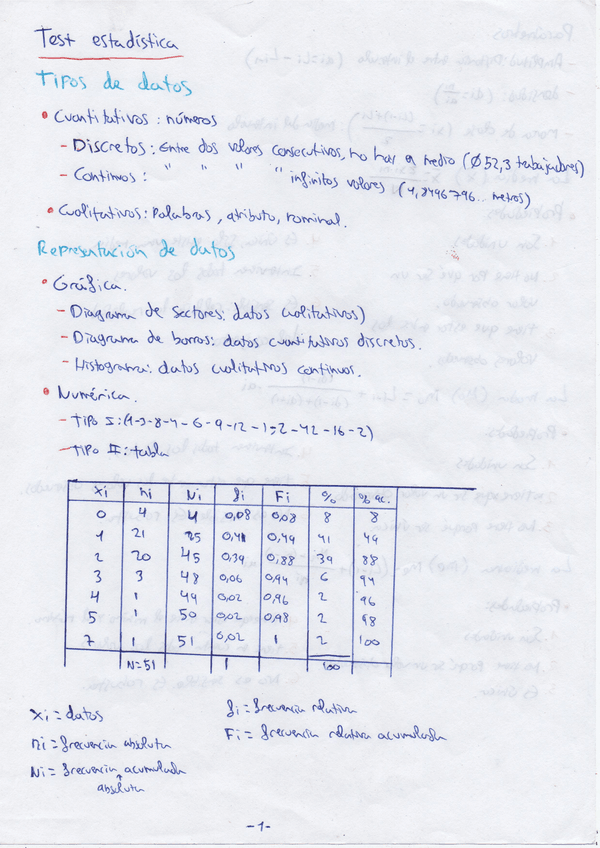 Test estadística
Tipos de datos
• Cuantitativos: números
- Discretos: Entre dos valores consecutivos, no hay en medio (Ø 52,3 trabajadores)
- Continuos: " " " " infinitos valores (1,8496796... metros)
• Cualitativos: Palabras, atributo, nominal.
Representación de datos
• Gráfica.
- Diagrama de sectores: datos cualitativos)
- Diagrama de barras: datos cuantitativos discretos.
- Histograma: datos cualitativos continuos.
• Numérica.
- Tipo I: (1-3-8-4-6-9-12-1-2-42-16-2)
- Tipo II: tabla
xi ni Ni fi Fi % % ac.
0 4 4 0,08 0,08 8 8
1 21 25 0,41 0,49 41 49
2 20 45 0,39 0,88 39 88
3 3 48 0,06 0,94 6 94
4 1 49 0,02 0,96 2 96
5 1 50 0,02 0,98 2 98
7 1 51 0,02 1 2 100
N=51 1 100
xi = datos
fi = frecuencia relativa
ni = frecuencia absoluta
Fi = frecuencia relativa acumulada
Ni = frecuencia acumulada
absoluta
-1-